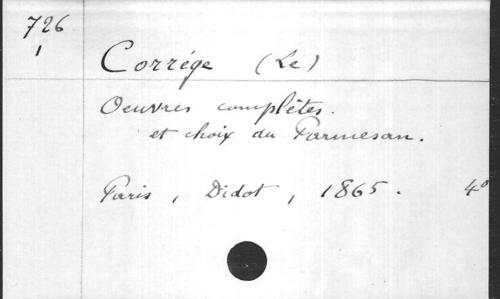 726
1
Corrége (Le)
Oeuvres complêtes.
et choix du Parmesan.
Paris, Didot, 1865. 4º